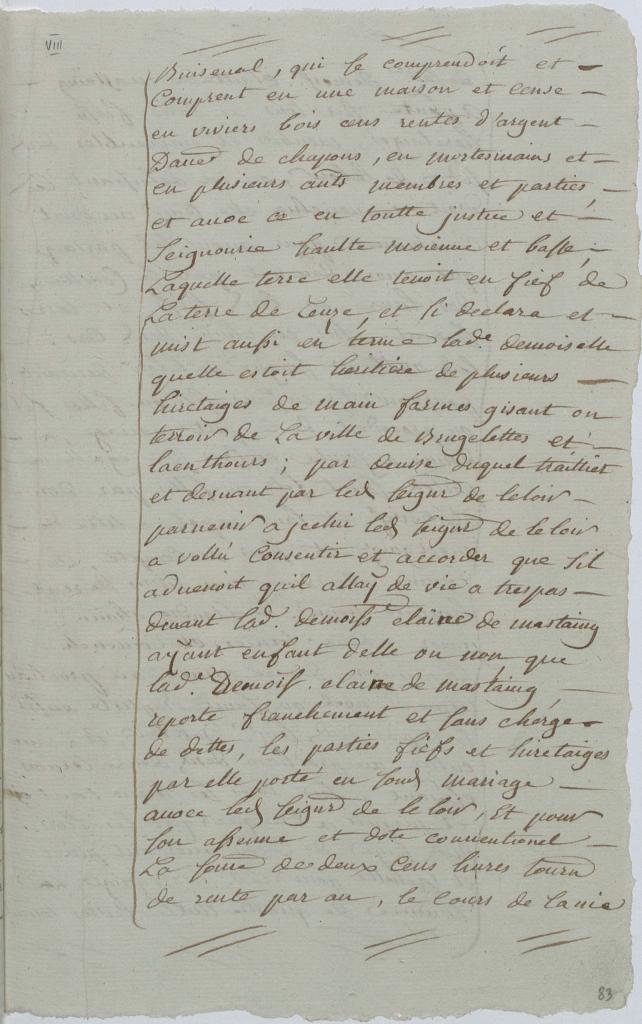 VIII
Buisenal, qui se comprendoit et —
Comprent en une maison et cense —
en viviers bois cens rentes d'argent —
Daues de chapons, en mortesmains et —
en plusieurs aults membres et parties, —
et avoec ce en toutte justice et —
Seignourie haulte moienne et basse, —
Laquelle terre elle tenoit en fief de
La terre de Leuze, et si declara et —
mist aussi en terme lade demoiselle
quelle estoit heritiere de plusieurs —
hiretaiges de main fermes gisant on
terroir de La ville de Brugelettes et —
laenthours; par devise duquel traittiet
et devant par led seigur de leloir —
parvenir a jcelui led seigur de leloir
a vollu Consentir et accorder que sil
advenoit quil allay de vie a trespas —
devant lad. demoiss elaine de mastaing
ayant enfant delle ou non que
lade. Demois. elaine de mastaing —
reporte franchement et sans charge —
de dettes, les parties fiefs et hiretaiges
par elle porté en sond mariage —
avoec led seigur de leloir, Et pour
son assenne et dote conventionel —
La some de deux Cens livres tourn
de rente par an, le cours de la vie
83